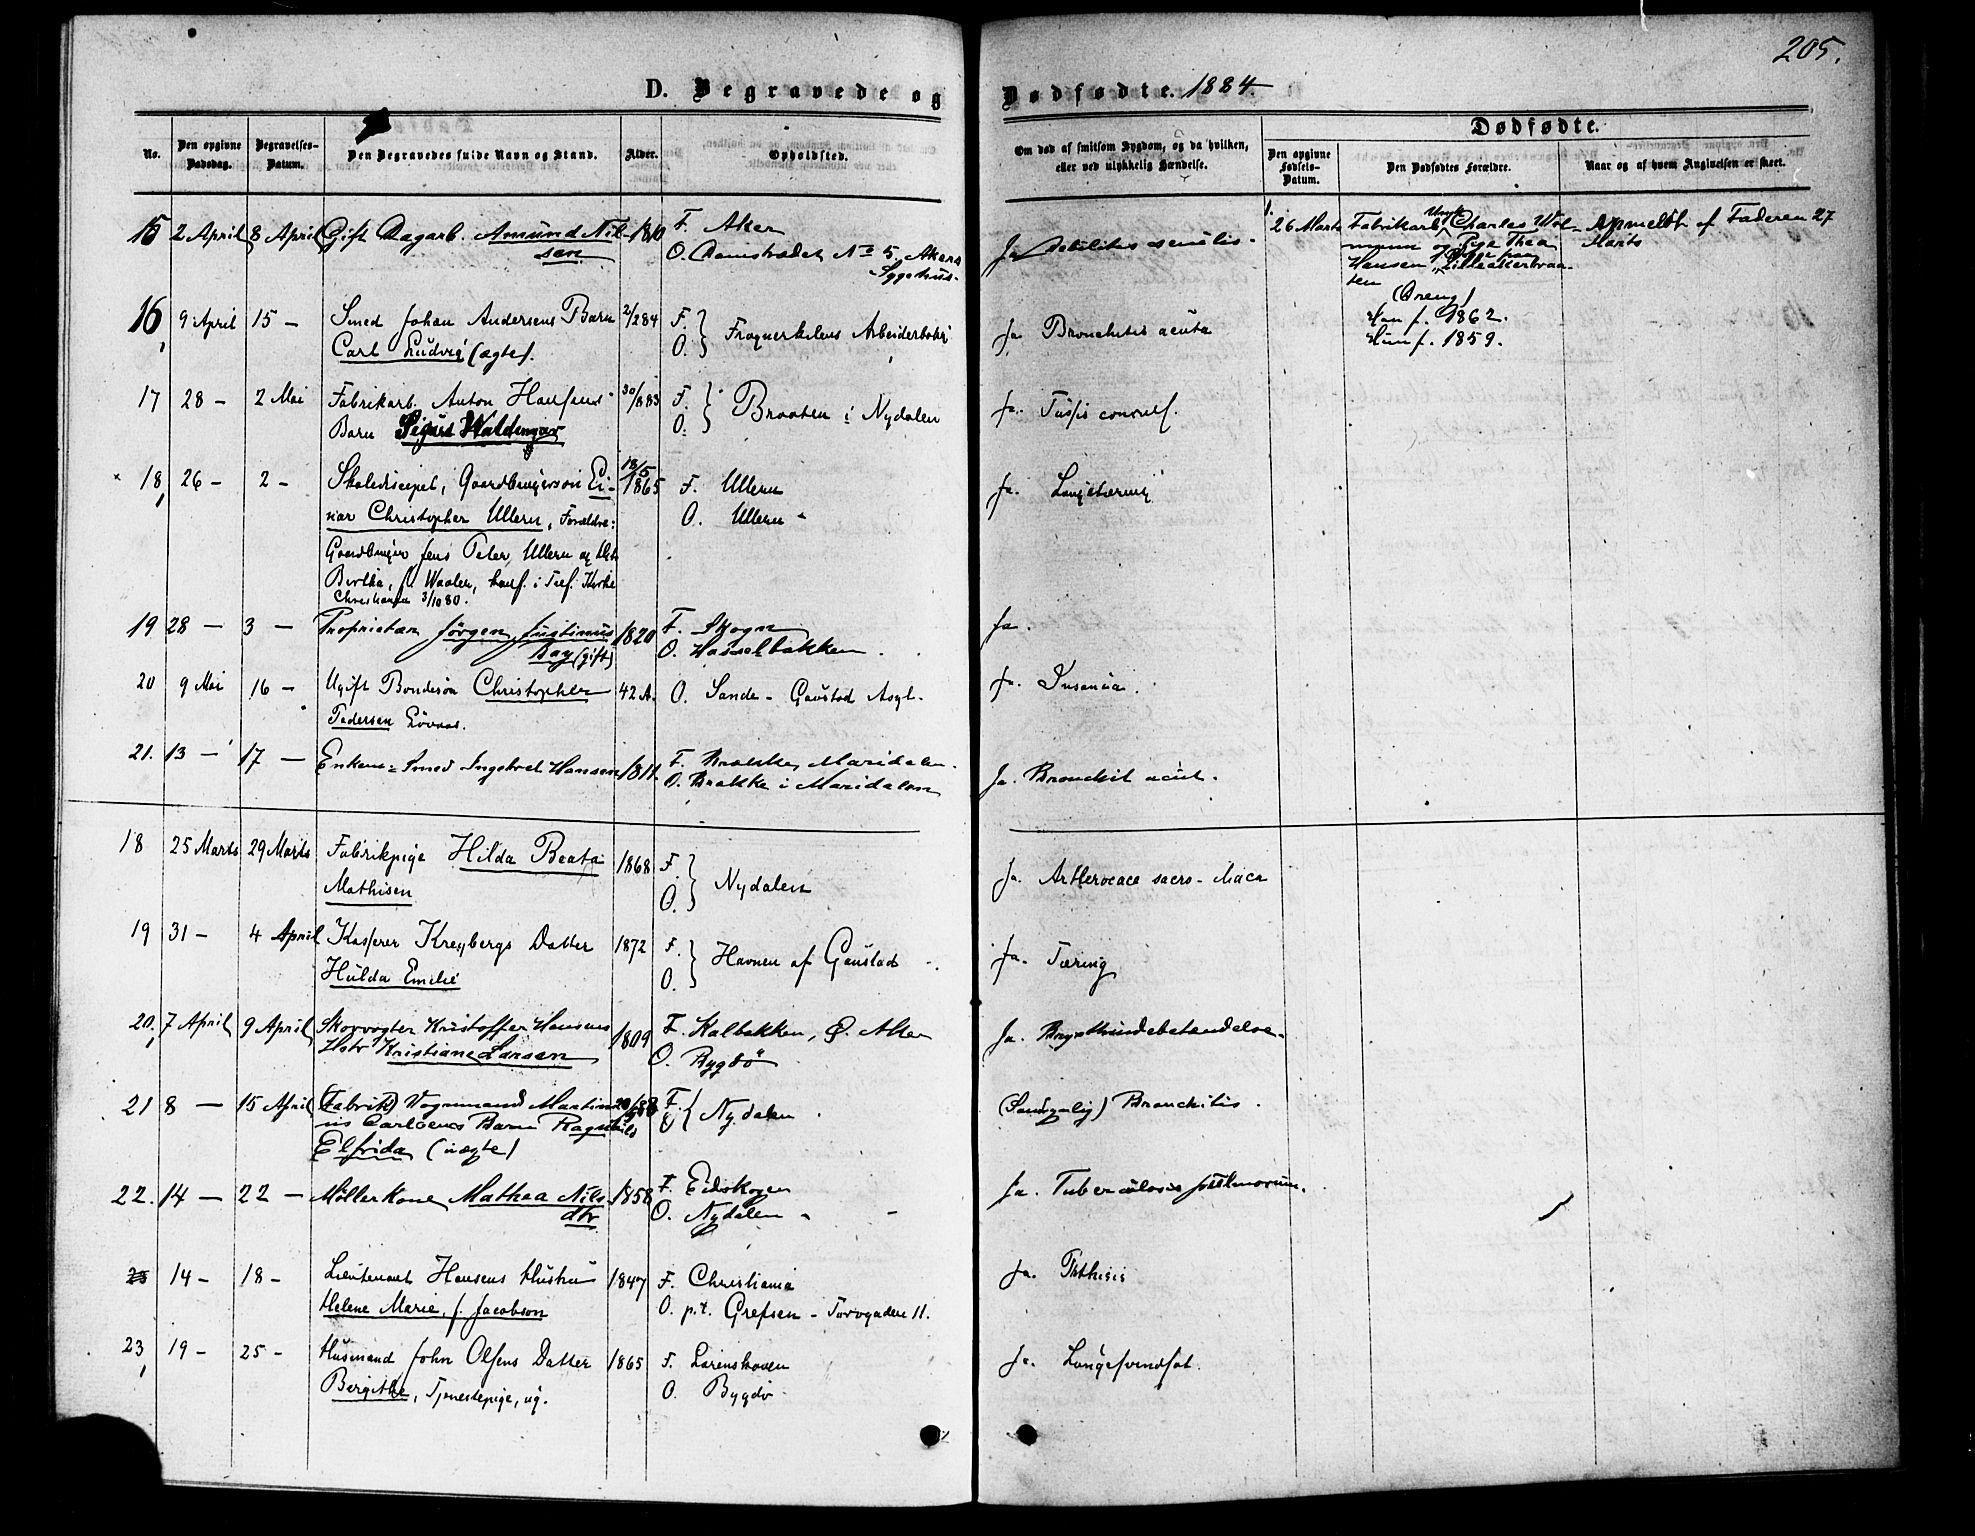 205.
D. Begravede og Dødfødte. 1884.
No.
Den opgivne Dødsdag.
Begravelses-Datum.
Den Begravedes fulde Navn og Stand.
Alder.
Opholdsted.
Om død af smitsom Sygdom, og da hvilken, eller ved ulykkelig Hændelse.
Dødfødte.
Den opgivne Fødsels-Datum.
Den Dødfødtes Forældre.
Naar og af hvem Angivelsen er skeet.
15 2 April 8 April Gift Dagarb. Amund Nil- 1810 F. Aker
sen O. No 5. Akers
Sygehus.
Ja Debilitas senilis.
1.
26 Marts Fabrikarb. Charles Wol- Anmeldt af Faderen 27
mann og Pige Thea Marts
Hansen Lilleakerbraa-
ten
(Dreng)
Han f. 1862.
Hun f. 1859.
16 9 April 15 - Smed Johan Andersens Barn 2/284 F.
Carl Ludvig (ægte). O. Frognerkilens Arbeiderbolig
Ja Bronchitis acuta
17 28 - 2 Mai Fabrikarb. Anton Hansens 30/883 F.
Barn Sigurd Waldemar O. Braaten i Nydalen
Ja. Tussis convuls.
18 26 - 2 - Skolediscipel, Gaardbrugersøn Ei- 18/5 1865 F. Ullern
nar Christopher Ullern, Forældre: O. Ullern
Gaardbruger Jens Peter Ullern og Hst
Bertha, f. Waaler, konf. i Tref. Kirke
Christiania 3/10 80.
Ja. Lungetæring
19 28 - 3 - Proprietær Jørgen Justinus 1820 F. Skogn
Bay (gift) O. Hasselbakken
Ja.
20 9 Mai 16 - Ugift Bondesøn Christopher 42 A. O. Sande - Gaustad Asyl.
Pedersen Løvaas.
Ja. Insania.
21. 13 - 17 - Enkem. Smed Ingebret Hansen 1811. F. Brække, Maridalen.
O. Brække i Maridalen
Ja. Bronchit acut.
18 25 Marts 29 Marts Fabrikpige Hilda Beata 1868 F.
Mathisen O. Nydalen
Ja. Arthrocace sacro-iliaca
19 31 - 4 April Kasserer Kreybergs Datter 1872 F.
Hulda Emilie O. Havnen af Gaustad
Ja. Tæring
20. 7 April 9 April Skovvogter Kristoffer Hansens 1809 F. Kalbakken, Ø. Aker
Hstr Kristiane Larsen O. Bygdø
Ja. Brysthindebetændelse.
21 8 - 15 April (Fabrik) Vognmand Martin- F.
us Carlsens Barn Ragnhild O. Nydalen
Elfrida (uægte)
(Sandsynlig) Bronchitis.
22. 14 - 22 - Møllerkone Mathea Nils- 1858 F. Eidskogen
dtr O. Nydalen
Ja. Tuberculosis pulmonum.
23 14 - 18 - Lieutenant Hansens Hustru 1847 F. Christiania
Helene Marie, f. Jacobson O. p.t. Grefsen - Torvgaden 11.
Ja. Phthisis
23 19 - 25 - Husmand John Olsens Datter 1865 F. Lørenskoven
Bergithe, Tjenestepige, ug. O. Bygdø
Ja. Lungesvindsot.